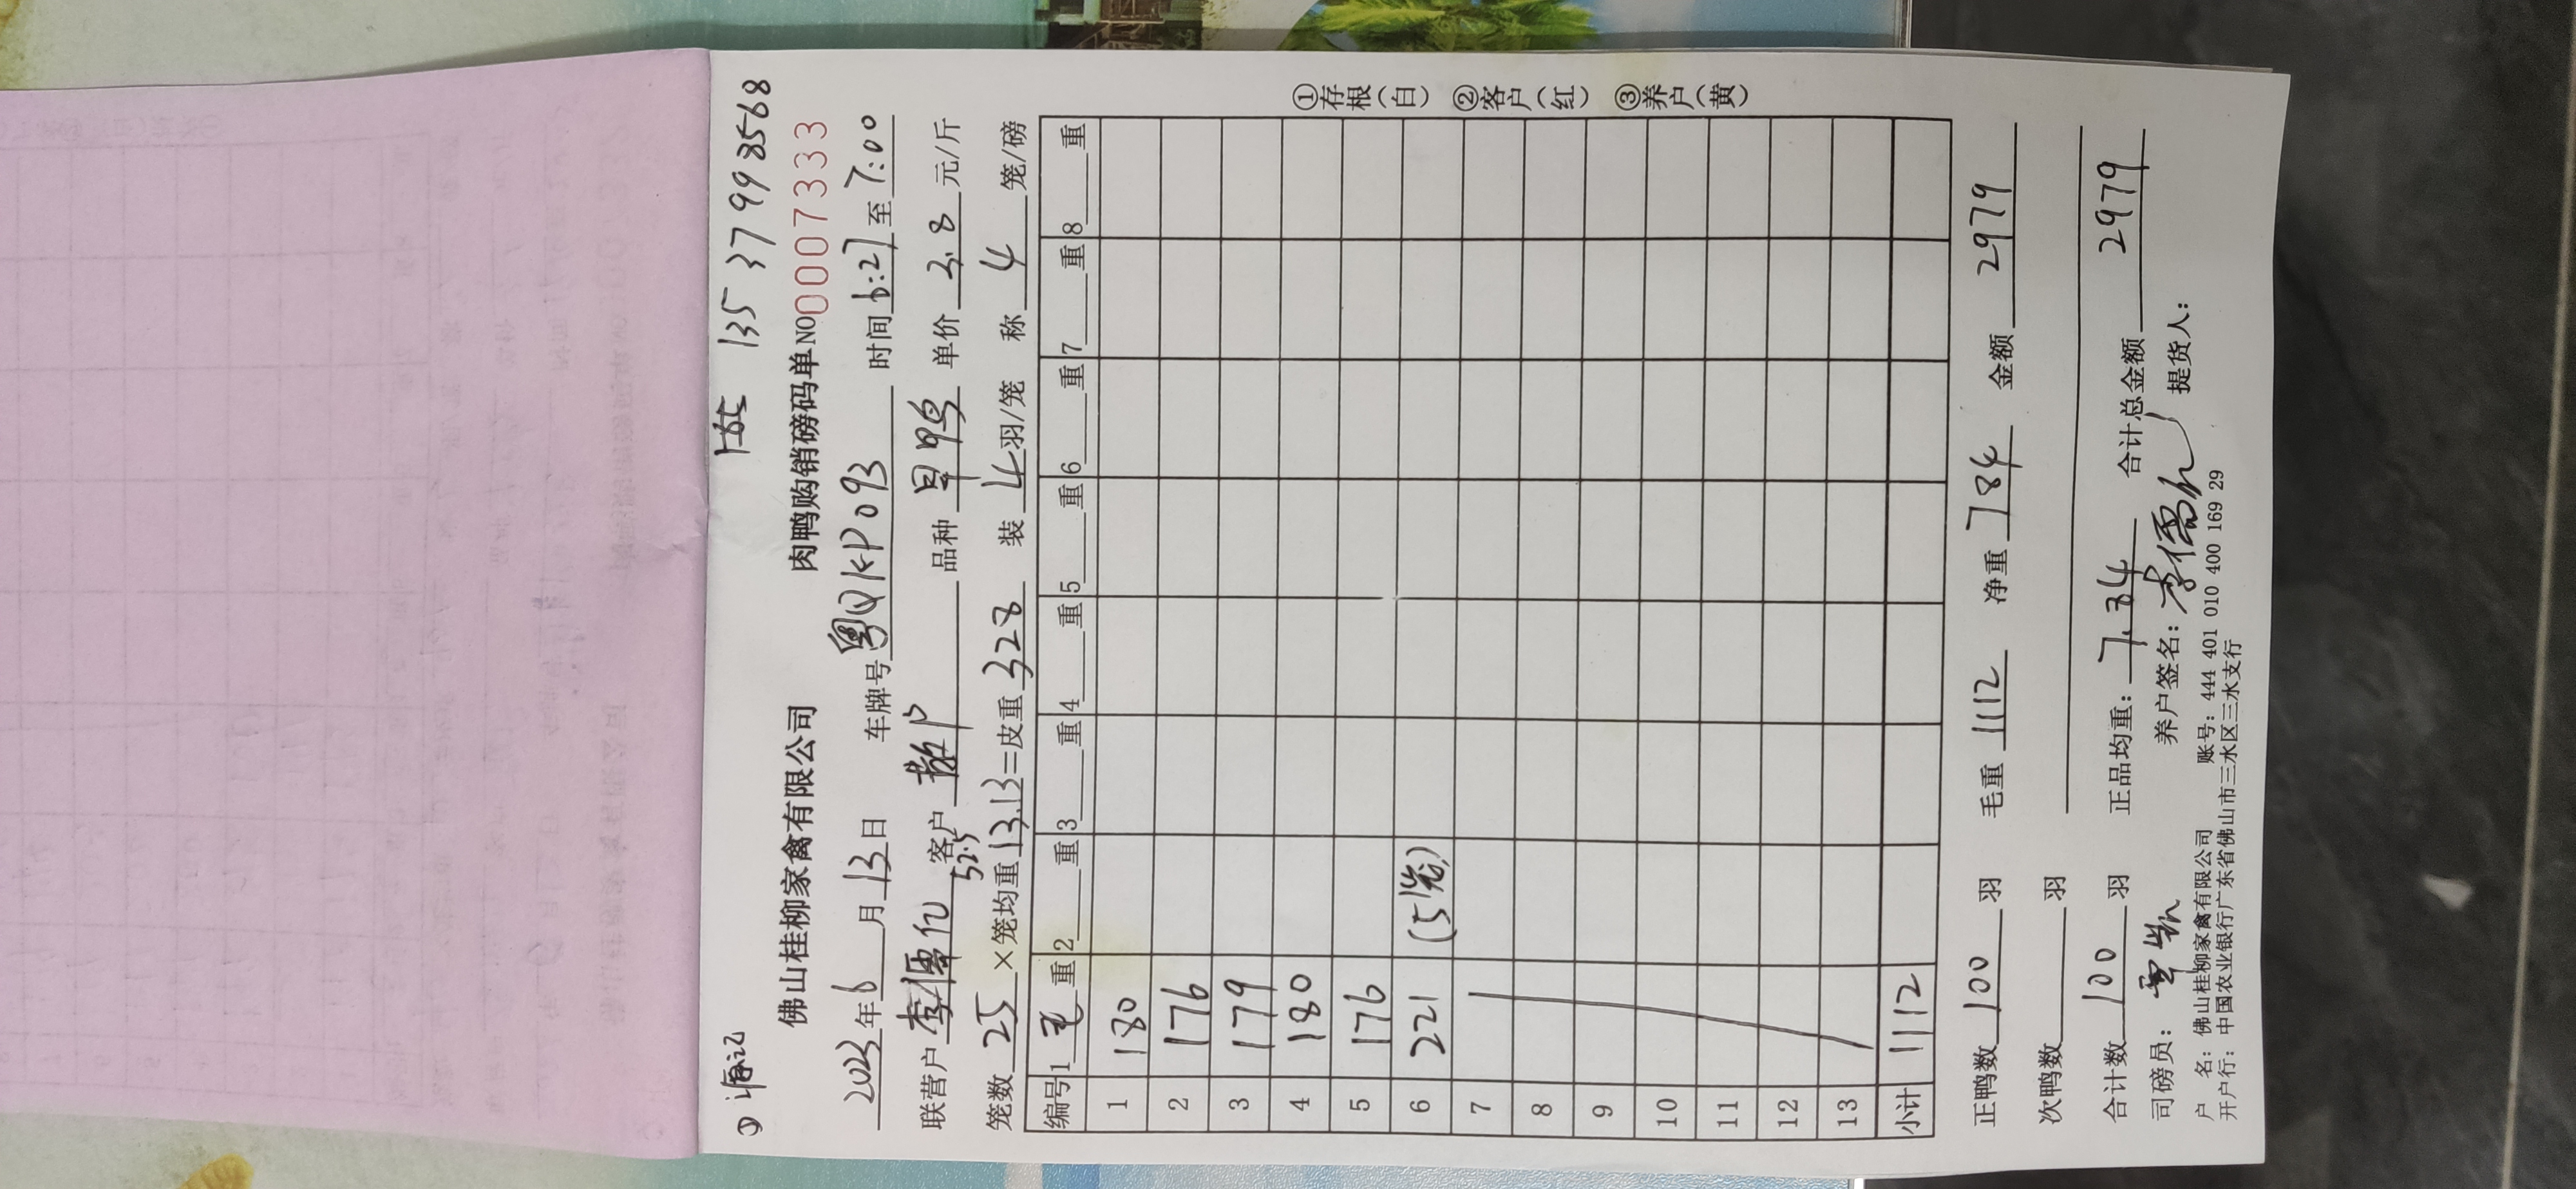 135 3799 8568
佛山桂柳家禽有限公司 肉鸭购销磅码单 NO 0007333
2023年6月13日 车牌号 粤QKP093 时间 6:27 至 7:00
联营户 李儒亿 客户 散户 品种 旱鸭 单价 3.8 元/斤
52.5
笼数 25 ×笼均重 13.13 =皮重 328 装 4 羽/笼 称 4 笼/磅
编号 1 毛 重 2 重 3 重 4 重 5 重 6 重 7 重 8 重
1 180
2 176
3 179
4 180
5 176
6 221 (5笼)
7
8
9
10
11
12
13
小计 1112
①存根(白) ②客户(红) ③养户(黄)
正鸭数 100 羽 毛重 1112 净重 784 金额 2979
次鸭数 羽
合计数 100 羽 正品均重: 7.84 合计总金额 2979
司磅员: 养户签名: 提货人:
户 名: 佛山桂柳家禽有限公司 账号: 444 401 010 400 169 29
开户行: 中国农业银行广东省佛山市三水区三水支行